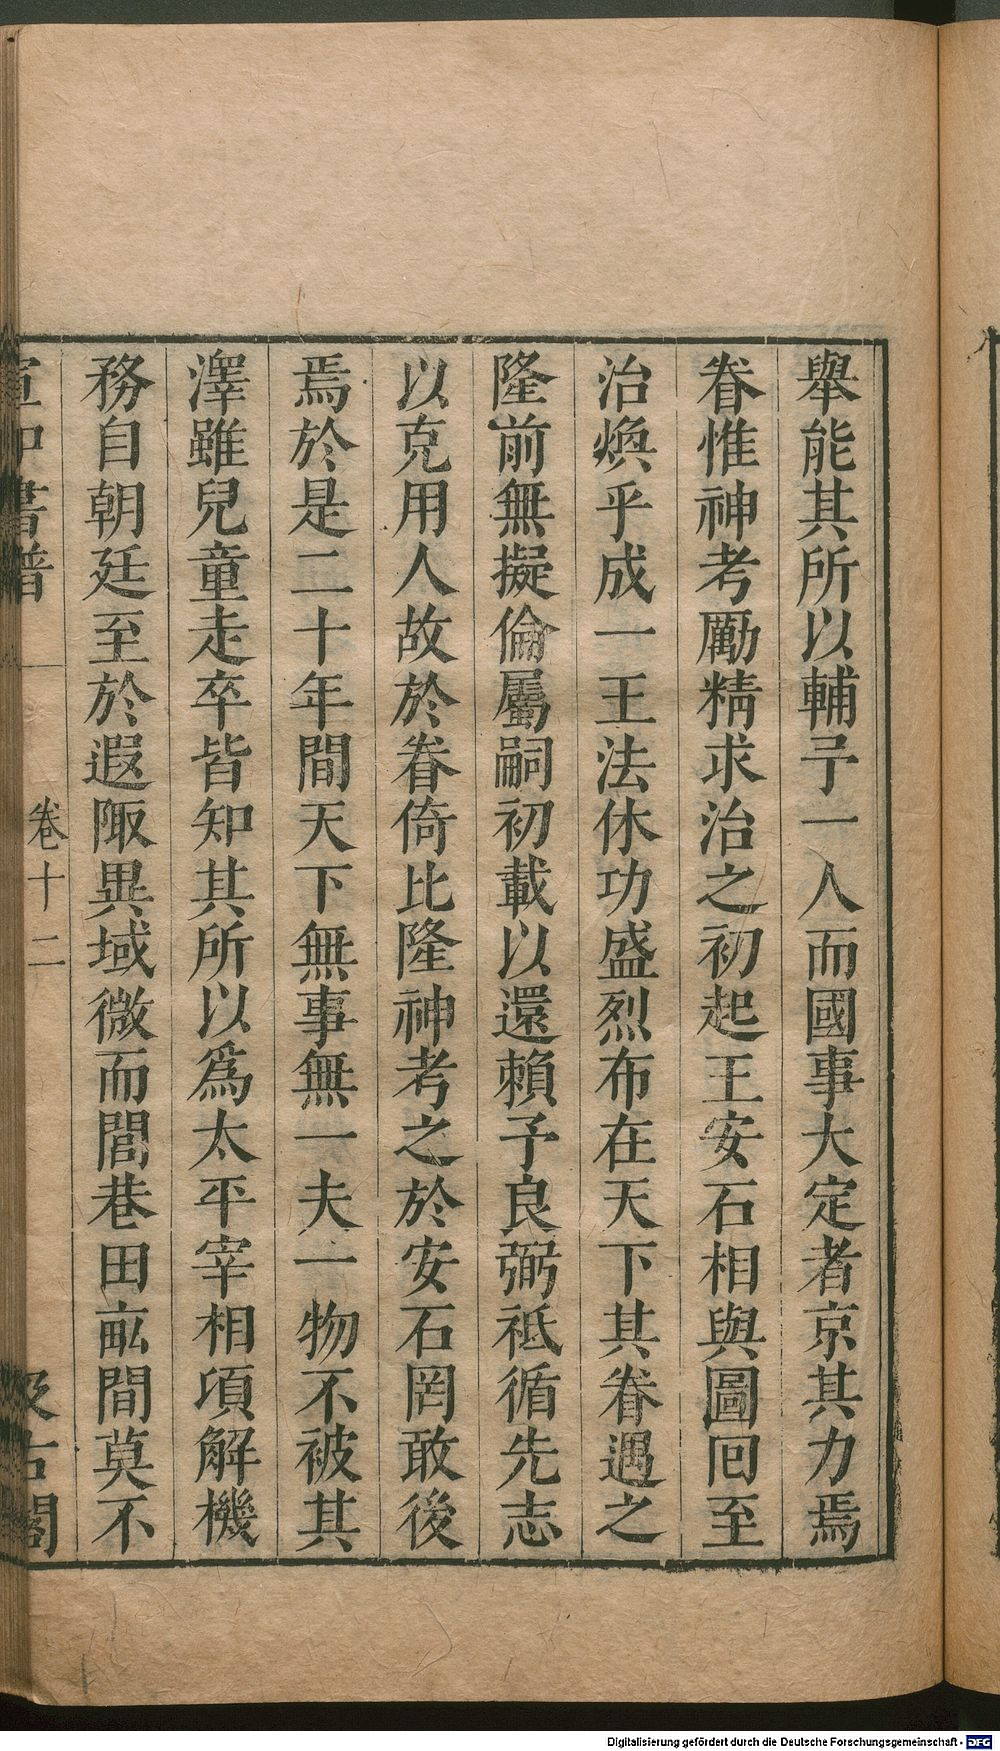 舉能其所以輔予一人而國事大定者京其力焉
眷惟神考勵精求治之初起王安石相與圖囘至
治煥乎成一王法休功盛烈布在天下其眷遇之
隆前無擬倫屬嗣初載以還賴予良弼祗循先志
以克用人故於眷倚比隆神考之於安石罔敢後
焉於是二十年間天下無事無一夫一物不被其
澤雖兒童走卒皆知其所以爲太平宰相項解機
務自朝廷至於遐陬異域微而閭巷田畝間莫不
宣和書譜 卷十二 汲古閣
Digitalisierung gefördert durch die Deutsche Forschungsgemeinschaft - DFG